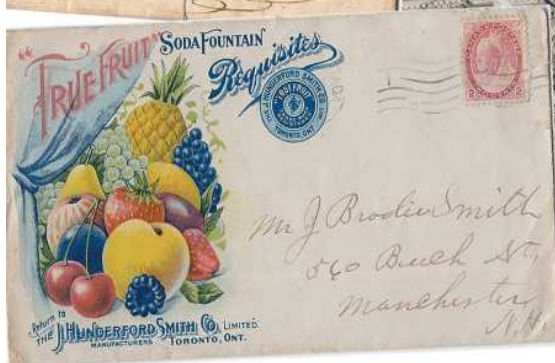 "TRUE FRUIT" SODA FOUNTAIN
Requisites
THE J. HUNGERFORD SMITH CO. LTD.
"TRUE FRUIT"
TORONTO, ONT.
2 CENTS 2
Mr J Brodie Smith
560 Beech St,
Manchester,
N.H.
Return to
THE J. HUNGERFORD SMITH CO. LIMITED.
MANUFACTURERS TORONTO, ONT.